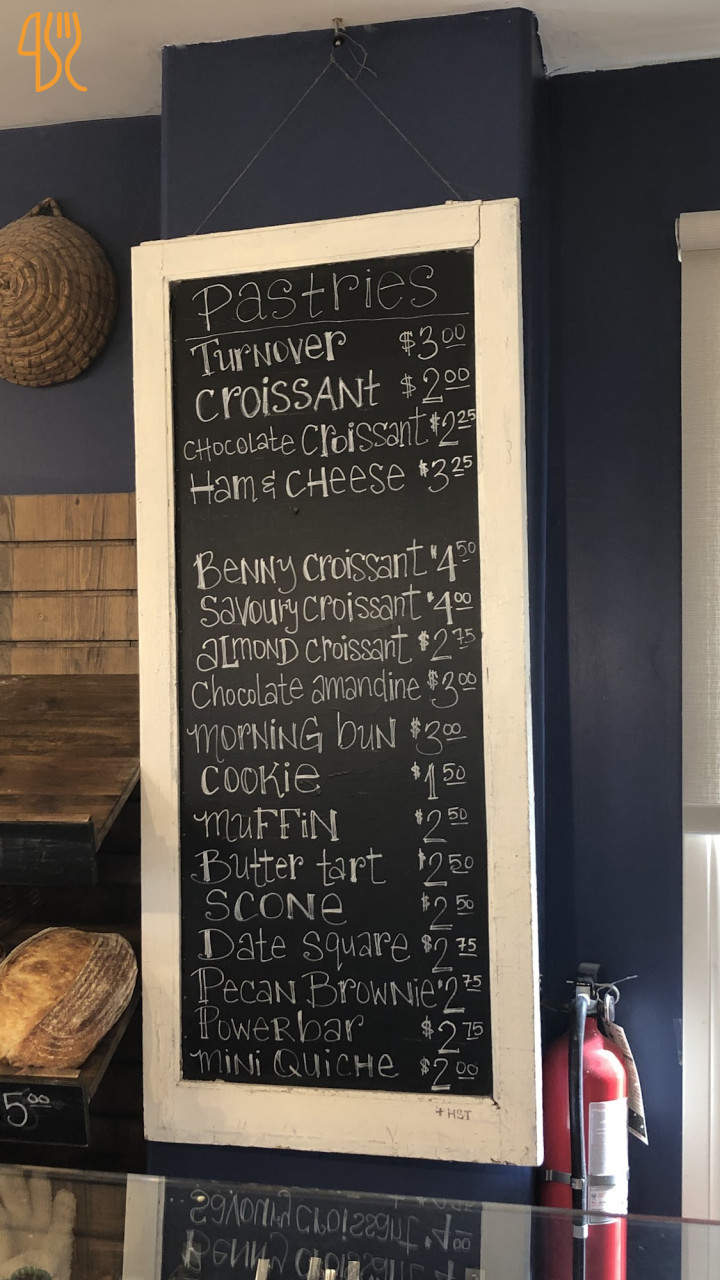 Pastries
Turnover $3.00
Croissant $2.00
Chocolate Croissant $2.25
Ham & Cheese $3.25
Benny Croissant $4.50
Savoury Croissant $4.00
Almond Croissant $2.75
Chocolate amandine $3.00
Morning Bun $3.00
Cookie $1.50
Muffin $2.50
Butter tart $2.50
Scone $2.50
Date Square $2.75
Pecan Brownie $2.75
Powerbar $2.75
Mini Quiche $2.00
+ HST
5.00
Savoury Croissant $4.00
Benny Croissant